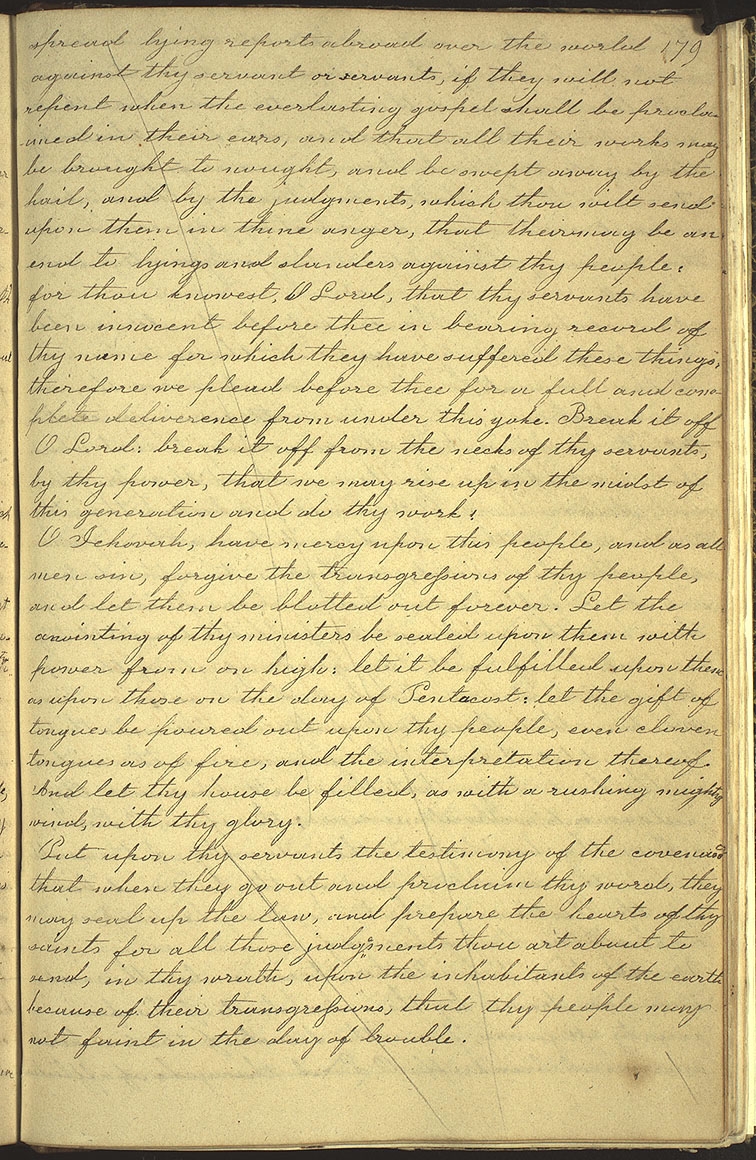 spread lying reports abroad over the world 179
against thy servant or servants, if they will not
repent when the everlasting gospel shall be procla-
imed in their ears, and that all their works may
be brought to nought, and be swept away by the
hail, and by the judgments, which thou wilt send
upon them in thine anger, that their may be an
end to lyings and slanders against thy people:
for thou knowest, O Lord, that thy servants have
been innocent before thee in bearing record of
thy name for which they have suffered these things,
therefore we plead before thee for a full and com-
plete deliverence from under this yoke. Break it off
O Lord: break it off from the necks of thy servants,
by thy power, that we may rise up in the midst of
this generation and do thy work!
O Jehovah, have mercy upon this people, and as all
men sin, forgive the transgressions of thy people,
and let them be blotted out forever. Let the
anointing of thy ministers be sealed upon them with
power from on high: let it be fulfilled upon them
as upon those on the day of Pentacost: let the gift of
tongues be poured out upon thy people, even cloven
tongues as of fire, and the interpretation thereof.
And let thy house be filled, as with a rushing mighty
wind, with thy glory.
Put upon thy servants the testimony of the covenant
that when they go out and proclaim thy word, they
may seal up the law, and prepare the hearts of thy
saints for all those judgements thou art about to
send, in thy wrath, upon the inhabitants of the earth
because of their transgressions, that thy people may
not faint in the day of trouble.